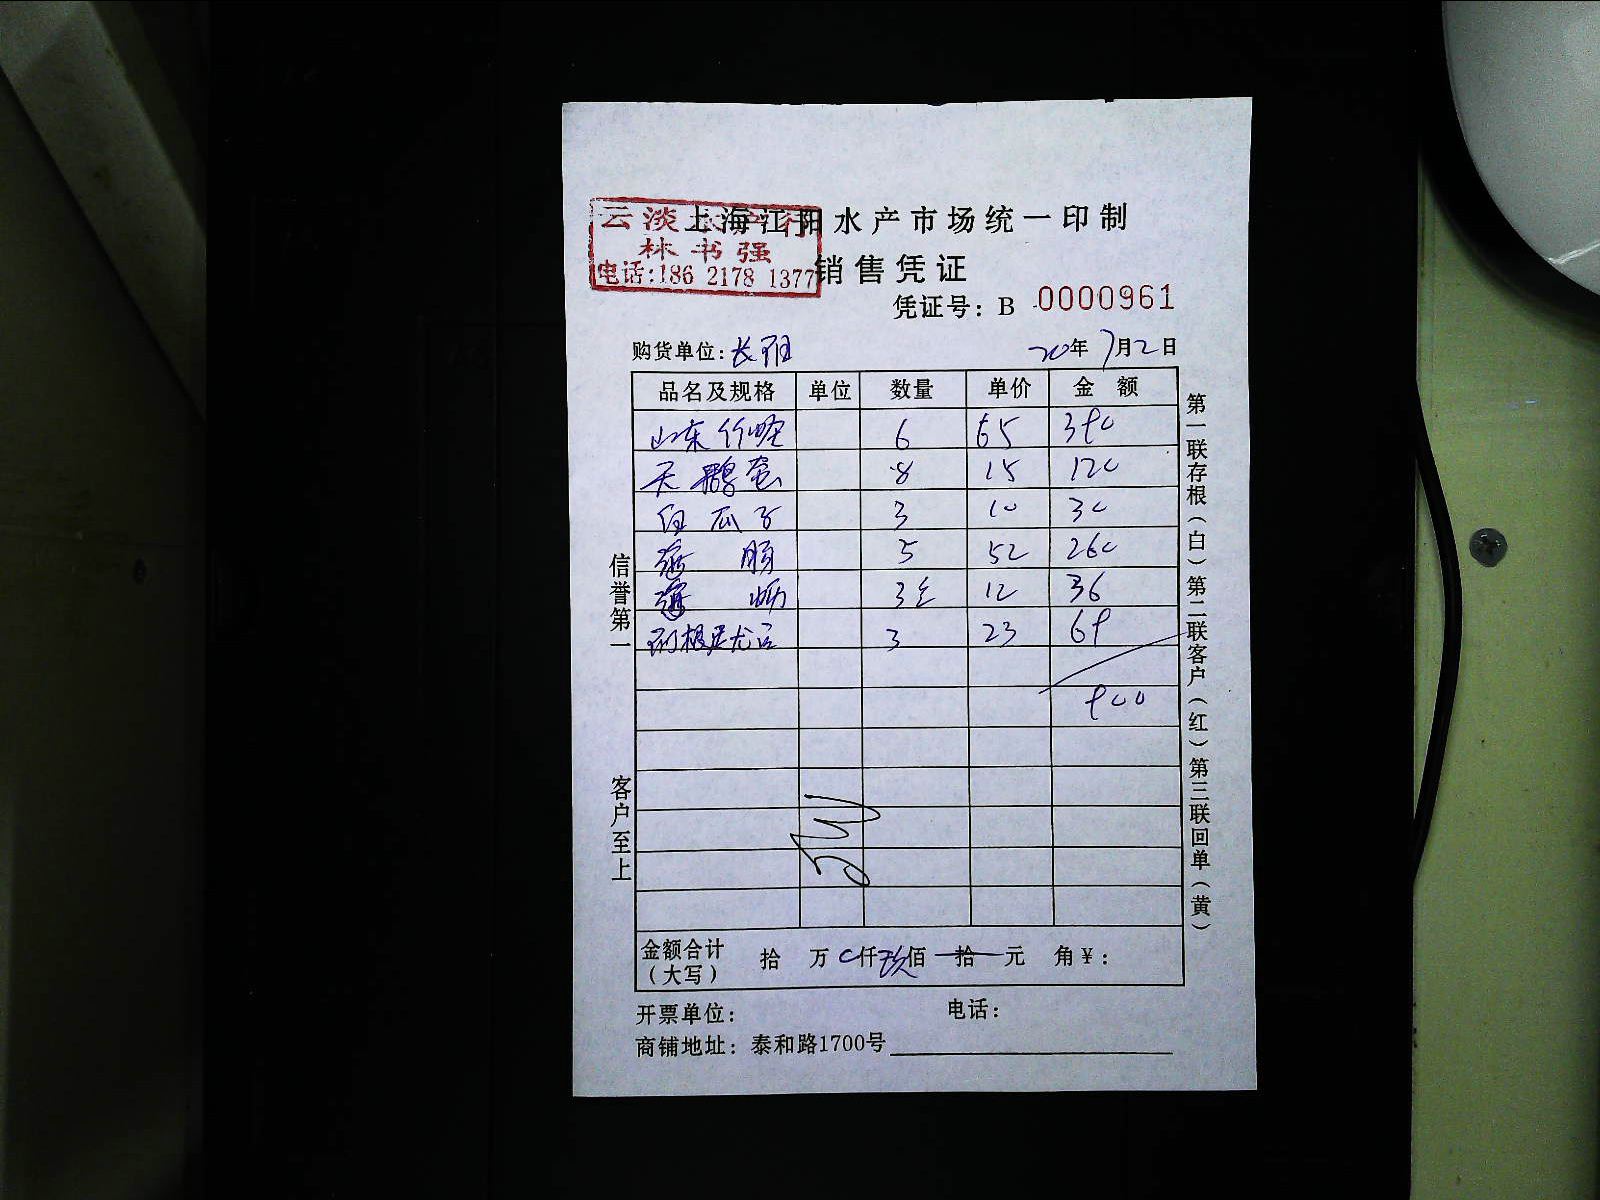 上海江阳水产市场统一印制
云淡水产行
林书强
电话:186 2178 1377
销售凭证
凭证号: B 0000961
购货单位: 20年7月2日
品名及规格 单位 数量 单价 金额
山东竹蛏 6 65 390
天鹅蛋 8 15 120
白瓜子 3 10 30
海肠 5 52 260
海蛎 3 12 36
3 23 69
900
金额合计(大写) 拾 万 0仟玖佰 拾 元 角¥:
开票单位: 电话:
商铺地址: 泰和路1700号
信誉第一
客户至上
第一联存根(白)第二联客户(红)第三联回单(黄)